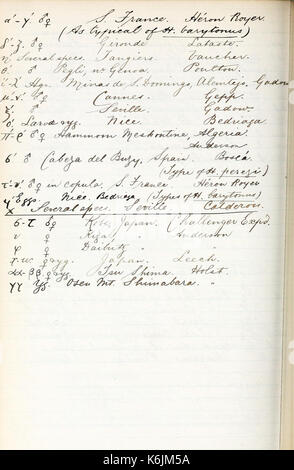 α'-γ'. ♂♀ S. France. Héron Royer
(As typical of H. barytonus)
♂♀ Gironde Lataste.
η. Several specs. Tangiers. Vaucher.
θ. ♂ Pegli, nr Genoa. Poulton.
Hgr. Minas de S. Domingo, Alemtejo, Gadow
μ-ν. ♂♀ Cannes. Gepp.
♂ Seville Gadow.
ο. Larvæ yg. Nice. Bedriaga
π-ρ ♂♀ Hammam Meskoutine, Algeria.
Anderson
б. ♂ Cabeza del Buey, Spain. Boscá.
(Type of H. perezi)
♂♀ in copula, S. France. Héron Royer
Nice. Bedriaga. (Types of H. barytonus)
X Several specs. Seville Calderon.
б-τ ♂♀ Kobe, Japan. Challenger Exped.
υ ♀ Anderson
φ ♀ Daibutz "
♀ yg. Japan. Leech.
αα-ββ. ♀ yg. Tsu Shima. Holst.
γγ yg. Osen Mt. Shimabara. "
alamy
Image ID: K6JM5A
www.alamy.com